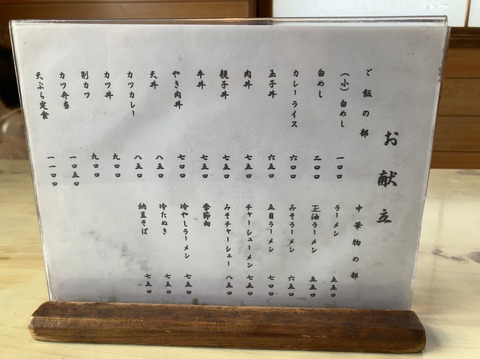 お献立
ご飯の部
(小)白めし 一〇〇
白めし 二〇〇
カレーライス 六〇〇
玉子丼 六五〇
肉丼 七五〇
親子丼 七五〇
牛丼 七五〇
やき肉丼 七〇〇
天丼 八五〇
カツカレー 八五〇
カツ丼 九〇〇
別カツ 九〇〇
カツ弁当 一〇五〇
天ぷら定食 一一〇〇
中華物の部
ラーメン 五五〇
正油ラーメン 五五〇
みそラーメン 六五〇
五目ラーメン 七五〇
チャーシューメン 七〇〇
みそチャーシュー 八五〇
季節向
冷やしラーメン 七五〇
冷たぬき 七五〇
納豆そば 七五〇